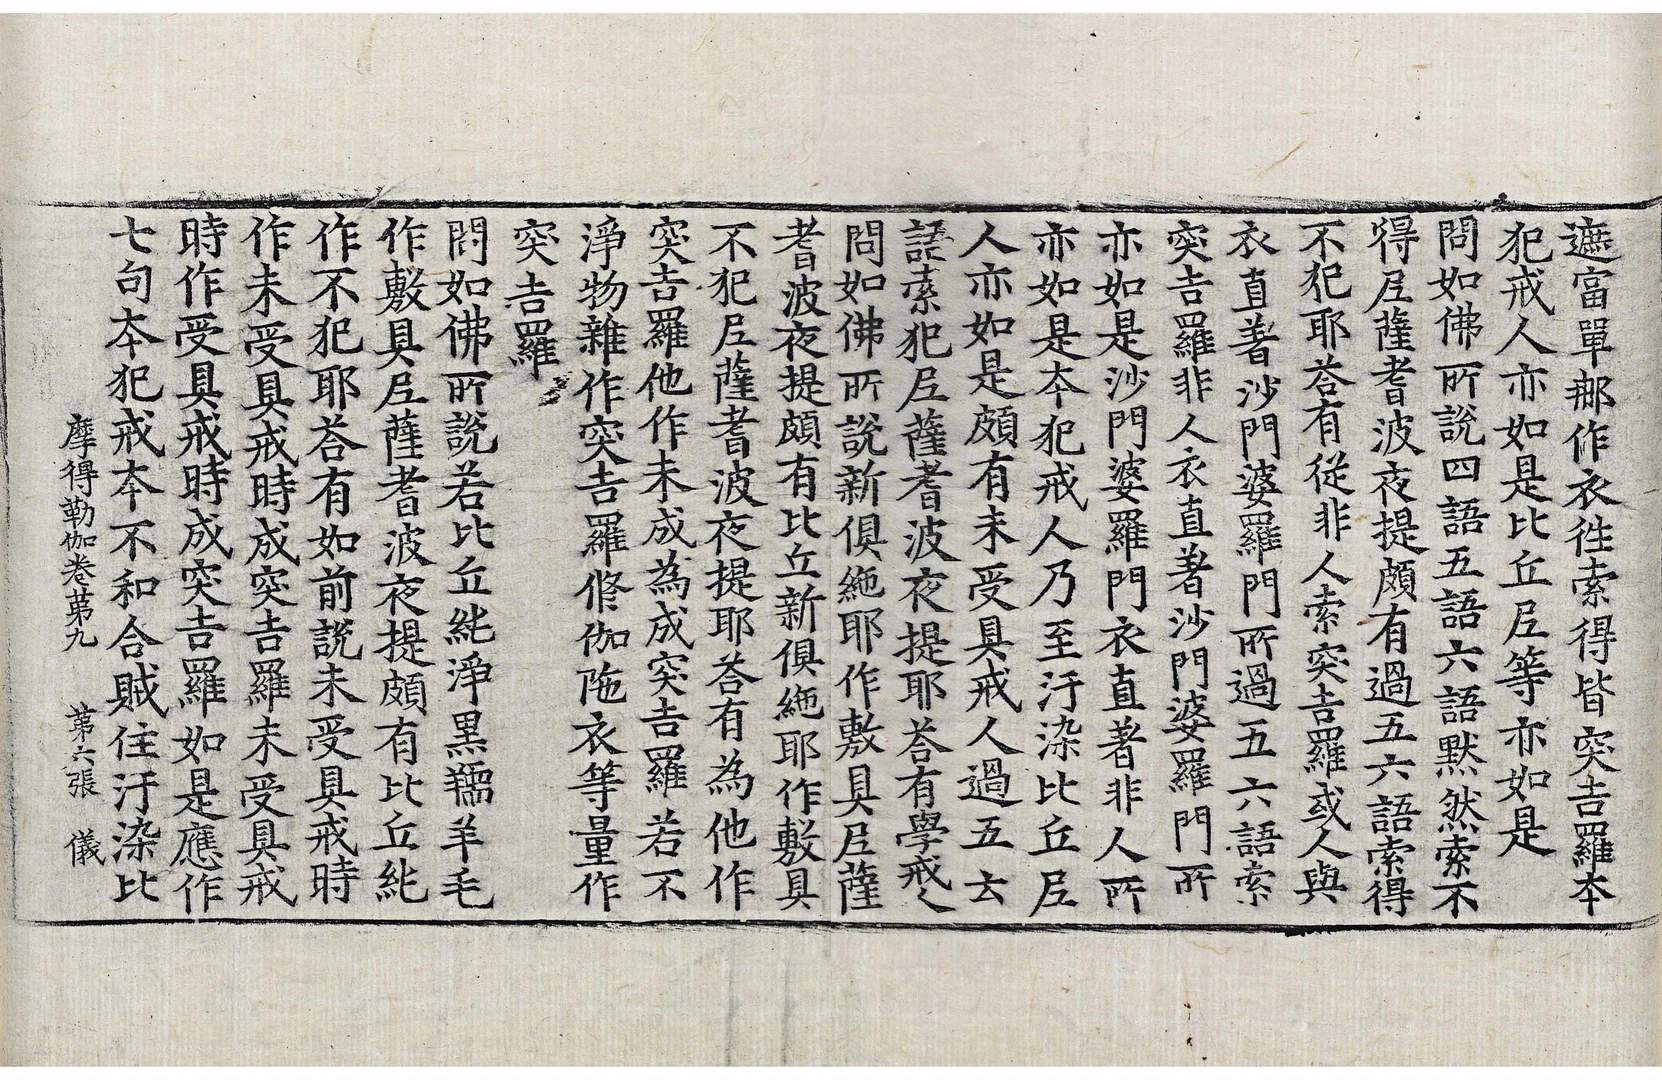 遮富單那作衣徃索得皆突吉羅本
犯戒人亦如是比丘尼等亦如是
問如佛所說四語五語六語默然索不
得尼薩耆波夜提頗有過五六語索得
不犯耶荅有從非人索突吉羅或人與
衣直著沙門婆羅門所過五六語索
突吉羅非人衣直著沙門婆羅門所
亦如是沙門婆羅門衣直著非人所
亦如是本犯戒人乃至汙染比丘尼
人亦如是頗有未受具戒人過五六
語索犯尼薩耆波夜提耶荅有學戒人
問如佛所說新俱絁耶作敷具尼薩
耆波夜提頗有比丘新俱絁耶作敷具
不犯尼薩耆波夜提耶荅有為他作
突吉羅他作未成為成突吉羅若不
淨物雜作突吉羅修伽陁衣等量作
突吉羅
問如佛所說若比丘純淨黑羺羊毛
作敷具尼薩耆波夜提頗有比丘純
作不犯耶荅有如前說未受具戒時
作未受具戒時成突吉羅未受具戒
時作受具戒時成突吉羅如是應作
七句本犯戒本不和合賊住汙染比
摩得勒伽卷第九 第六張 儀